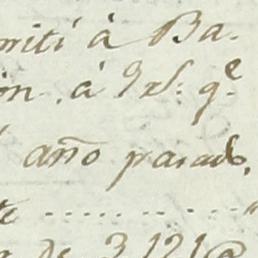 mití à Ba.
ón. á Ysl: q.e
año pasado,
te ..............
de 3,121@